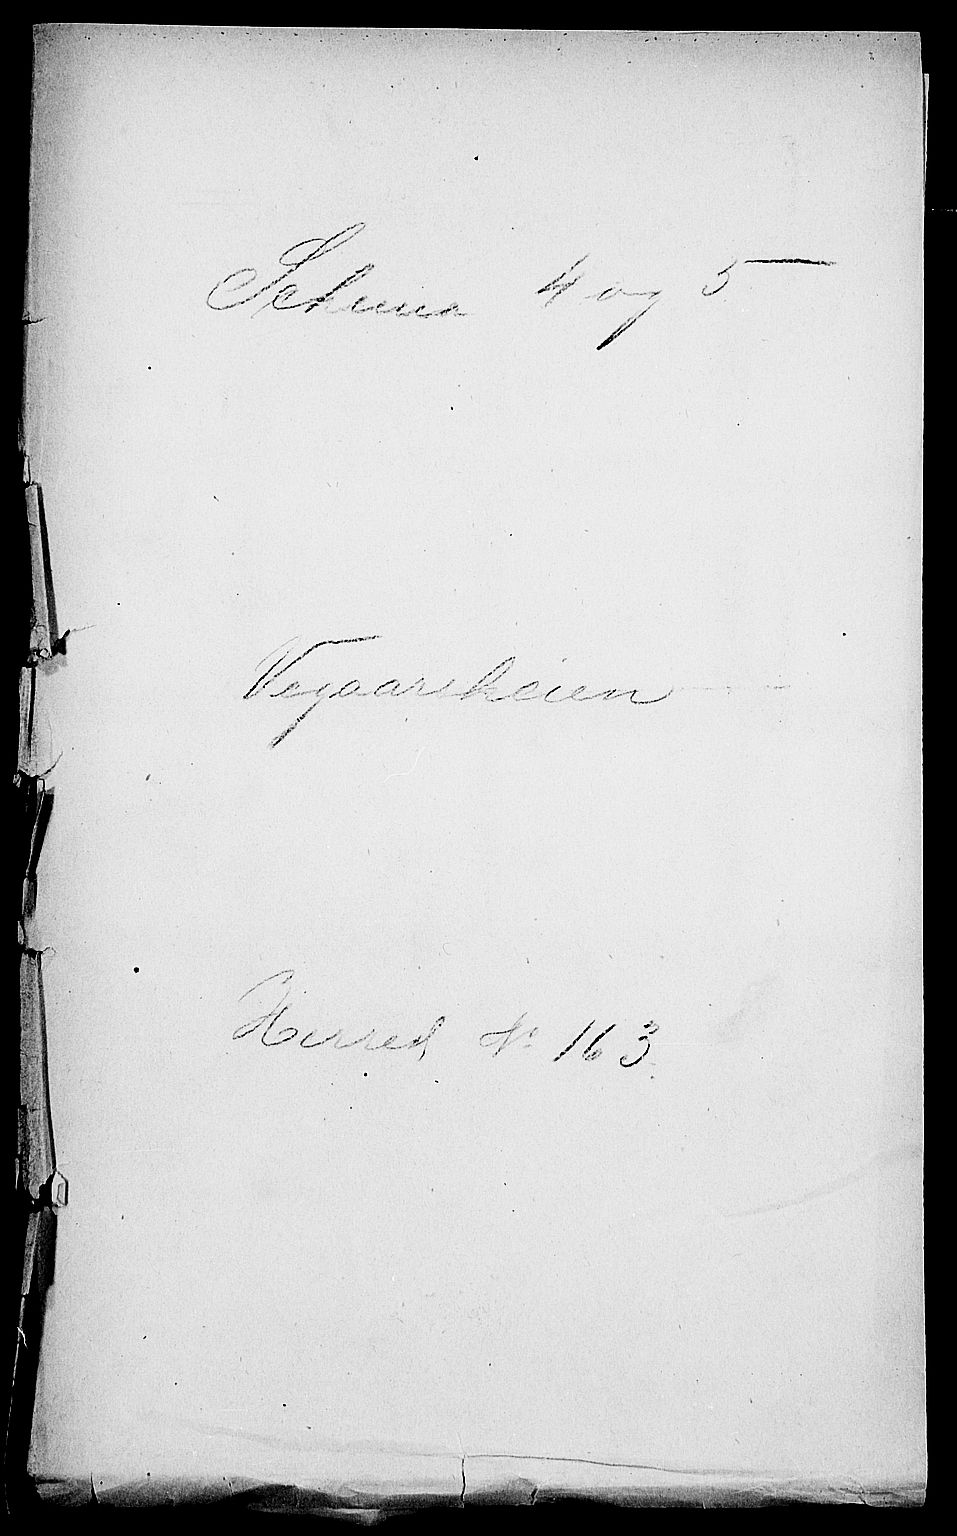 Schema 4 og 5
Vegaarsheien
Herred No 163.